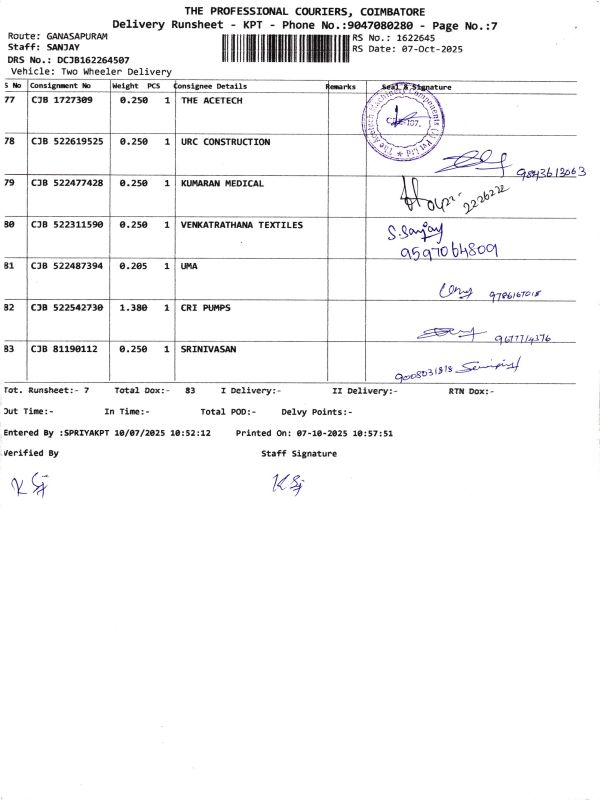 THE PROFESSIONAL COURIERS, COIMBATORE
Delivery Runsheet - KPT - Phone No.:9047080280 - Page No.:7
Route: GANASAPURAM RS No.: 1622645
Staff: SANJAY RS Date: 07-Oct-2025
DRS No.: DCJB162264507
Vehicle: Two Wheeler Delivery
S No Consignment No Weight PCS Consignee Details Remarks Seal & Signature
77 CJB 1727309 0.250 1 THE ACETECH
The Acetech Machinery Components (I) Pvt Ltd
78 CJB 522619525 0.250 1 URC CONSTRUCTION
9843613063
79 CJB 522477428 0.250 1 KUMARAN MEDICAL
2226222
80 CJB 522311590 0.250 1 VENKATRATHANA TEXTILES S.Sanjay
9597064809
81 CJB 522487394 0.205 1 UMA
Uma 9786167018
82 CJB 522542730 1.380 1 CRI PUMPS
9677714376
83 CJB 81190112 0.250 1 SRINIVASAN
9008031818
Tot. Runsheet:- 7 Total Dox:- 83 I Delivery:- II Delivery:- RTN Dox:-
Out Time:- In Time:- Total POD:- Delvy Points:-
Entered By :SPRIYAKPT 10/07/2025 10:52:12 Printed On: 07-10-2025 10:57:51
Verified By Staff Signature